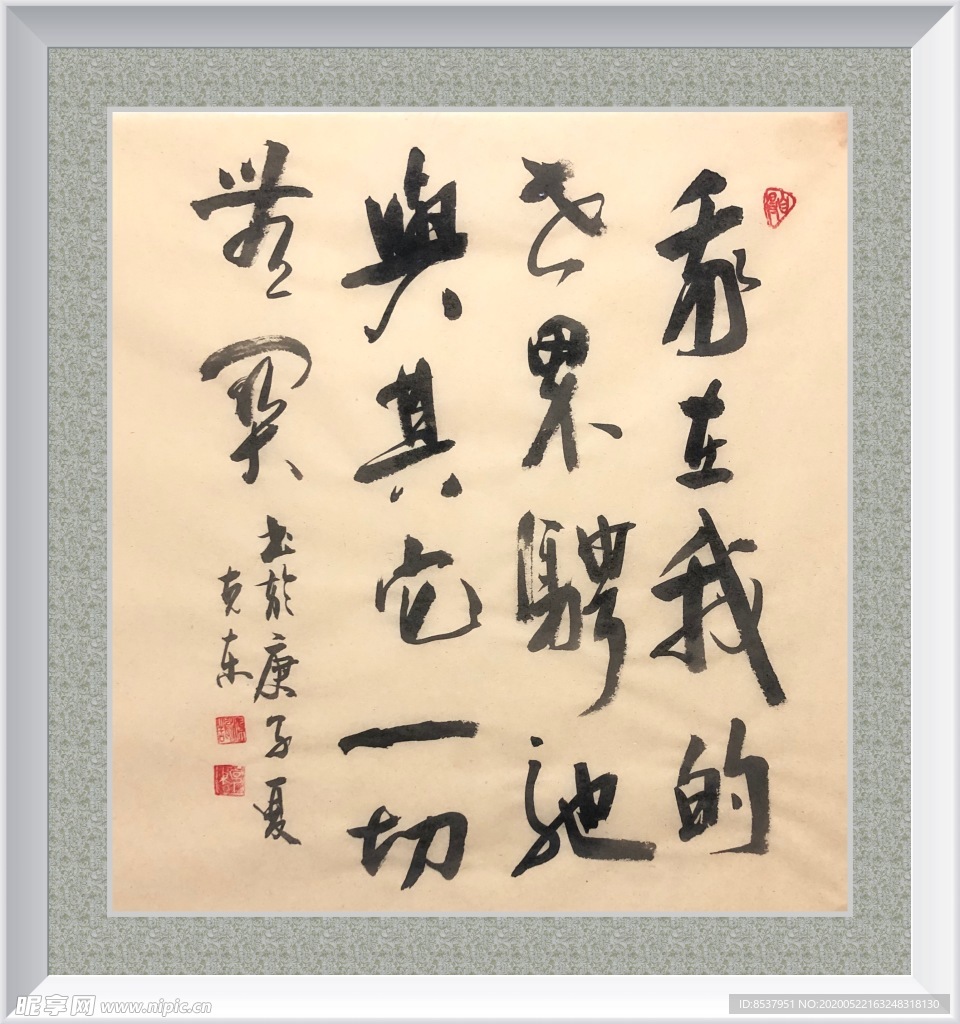 我在我的
世界騁馳
與其它一切
無関
书於庚子夏
克东
昵享网 www.nipic.cn
ID:8537951 NO:20200522163248318130